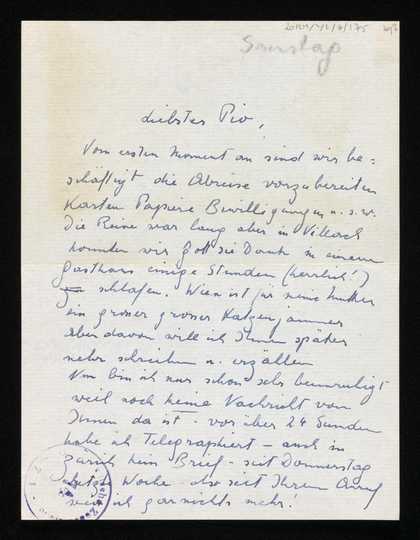 Samstag
Liebster Pio,
Vom ersten Moment an sind wir be=
schäftigt die Abreise vorzubereiten
Karten Papiere Bewilligungen u. s. w.
Die Reise war lang aber in Villach
konnten wir Gott sei Dank in einem
Gasthaus einige Stunden (herrlich!)
schlafen. Wien ist für meine Mutter
ein grosser grosser Katzenjammer
Aber davon will ich Ihnen später
mehr schreiben u. erzählen
Nun bin ich nur schon sehr beunruhigt
weil noch keine Nachricht von
Ihnen da ist - vor über 24 Stunden
habe ich Telegraphiert - auch in
Zürich kein Brief - seit Donnerstag
letzte Woche also seit Ihrem Anruf
weiss ich garnichts mehr!